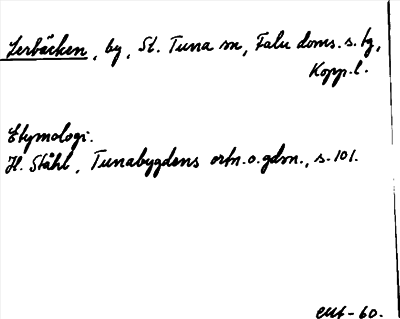 Lerbäcken, by, St. Tuna sn, Falu doms. s. tg,
Kopp. l.
Etymologi.
H. Ståhl, Tunabygdens ortn. o. gdsn., s. 101.
-60.